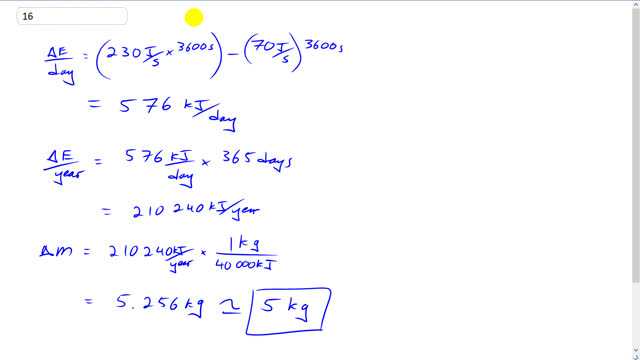 16
ΔE/day = (230 J/s × 3600s) − (70 J/s) 3600s
= 576 kJ/day
ΔE/year = 576 kJ/day × 365 days
= 210 240 kJ/year
Δm = 210 240 kJ/year × 1 kg/40 000 kJ
= 5.256 kg ≃ 5 kg